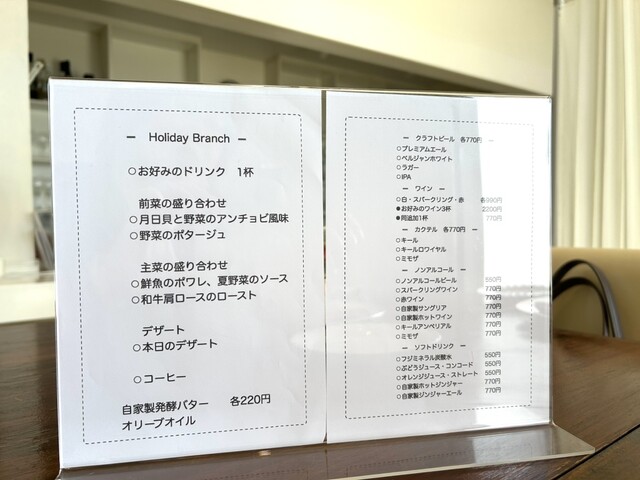 ー Holiday Branch ー
○お好みのドリンク 1杯
前菜の盛り合わせ
○月日貝と野菜のアンチョビ風味
○野菜のポタージュ
主菜の盛り合わせ
○鮮魚のポワレ、夏野菜のソース
○和牛肩ロースのロースト
デザート
○本日のデザート
○コーヒー
自家製発酵バター 各220円
オリーブオイル
ー クラフトビール 各770円 ー
○プレミアムエール
○ベルジャンホワイト
○ラガー
○IPA
ー ワイン ー
○白・スパークリング・赤 各990円
●お好みのワイン3杯 2200円
●同追加1杯 770円
ー カクテル 各770円 ー
○キール
○キールロワイヤル
○ミモザ
ー ノンアルコール ー
○ノンアルコールビール 550円
○スパークリングワイン 770円
○赤ワイン 770円
○自家製サングリア 770円
○自家製ホットワイン 770円
○キールアンペリアル 770円
○ミモザ 770円
ー ソフトドリンク ー
○フジミネラル炭酸水 550円
○ぶどうジュース・コンコード 550円
○オレンジジュース・ストレート 550円
○自家製ホットジンジャー 770円
○自家製ジンジャーエール 770円